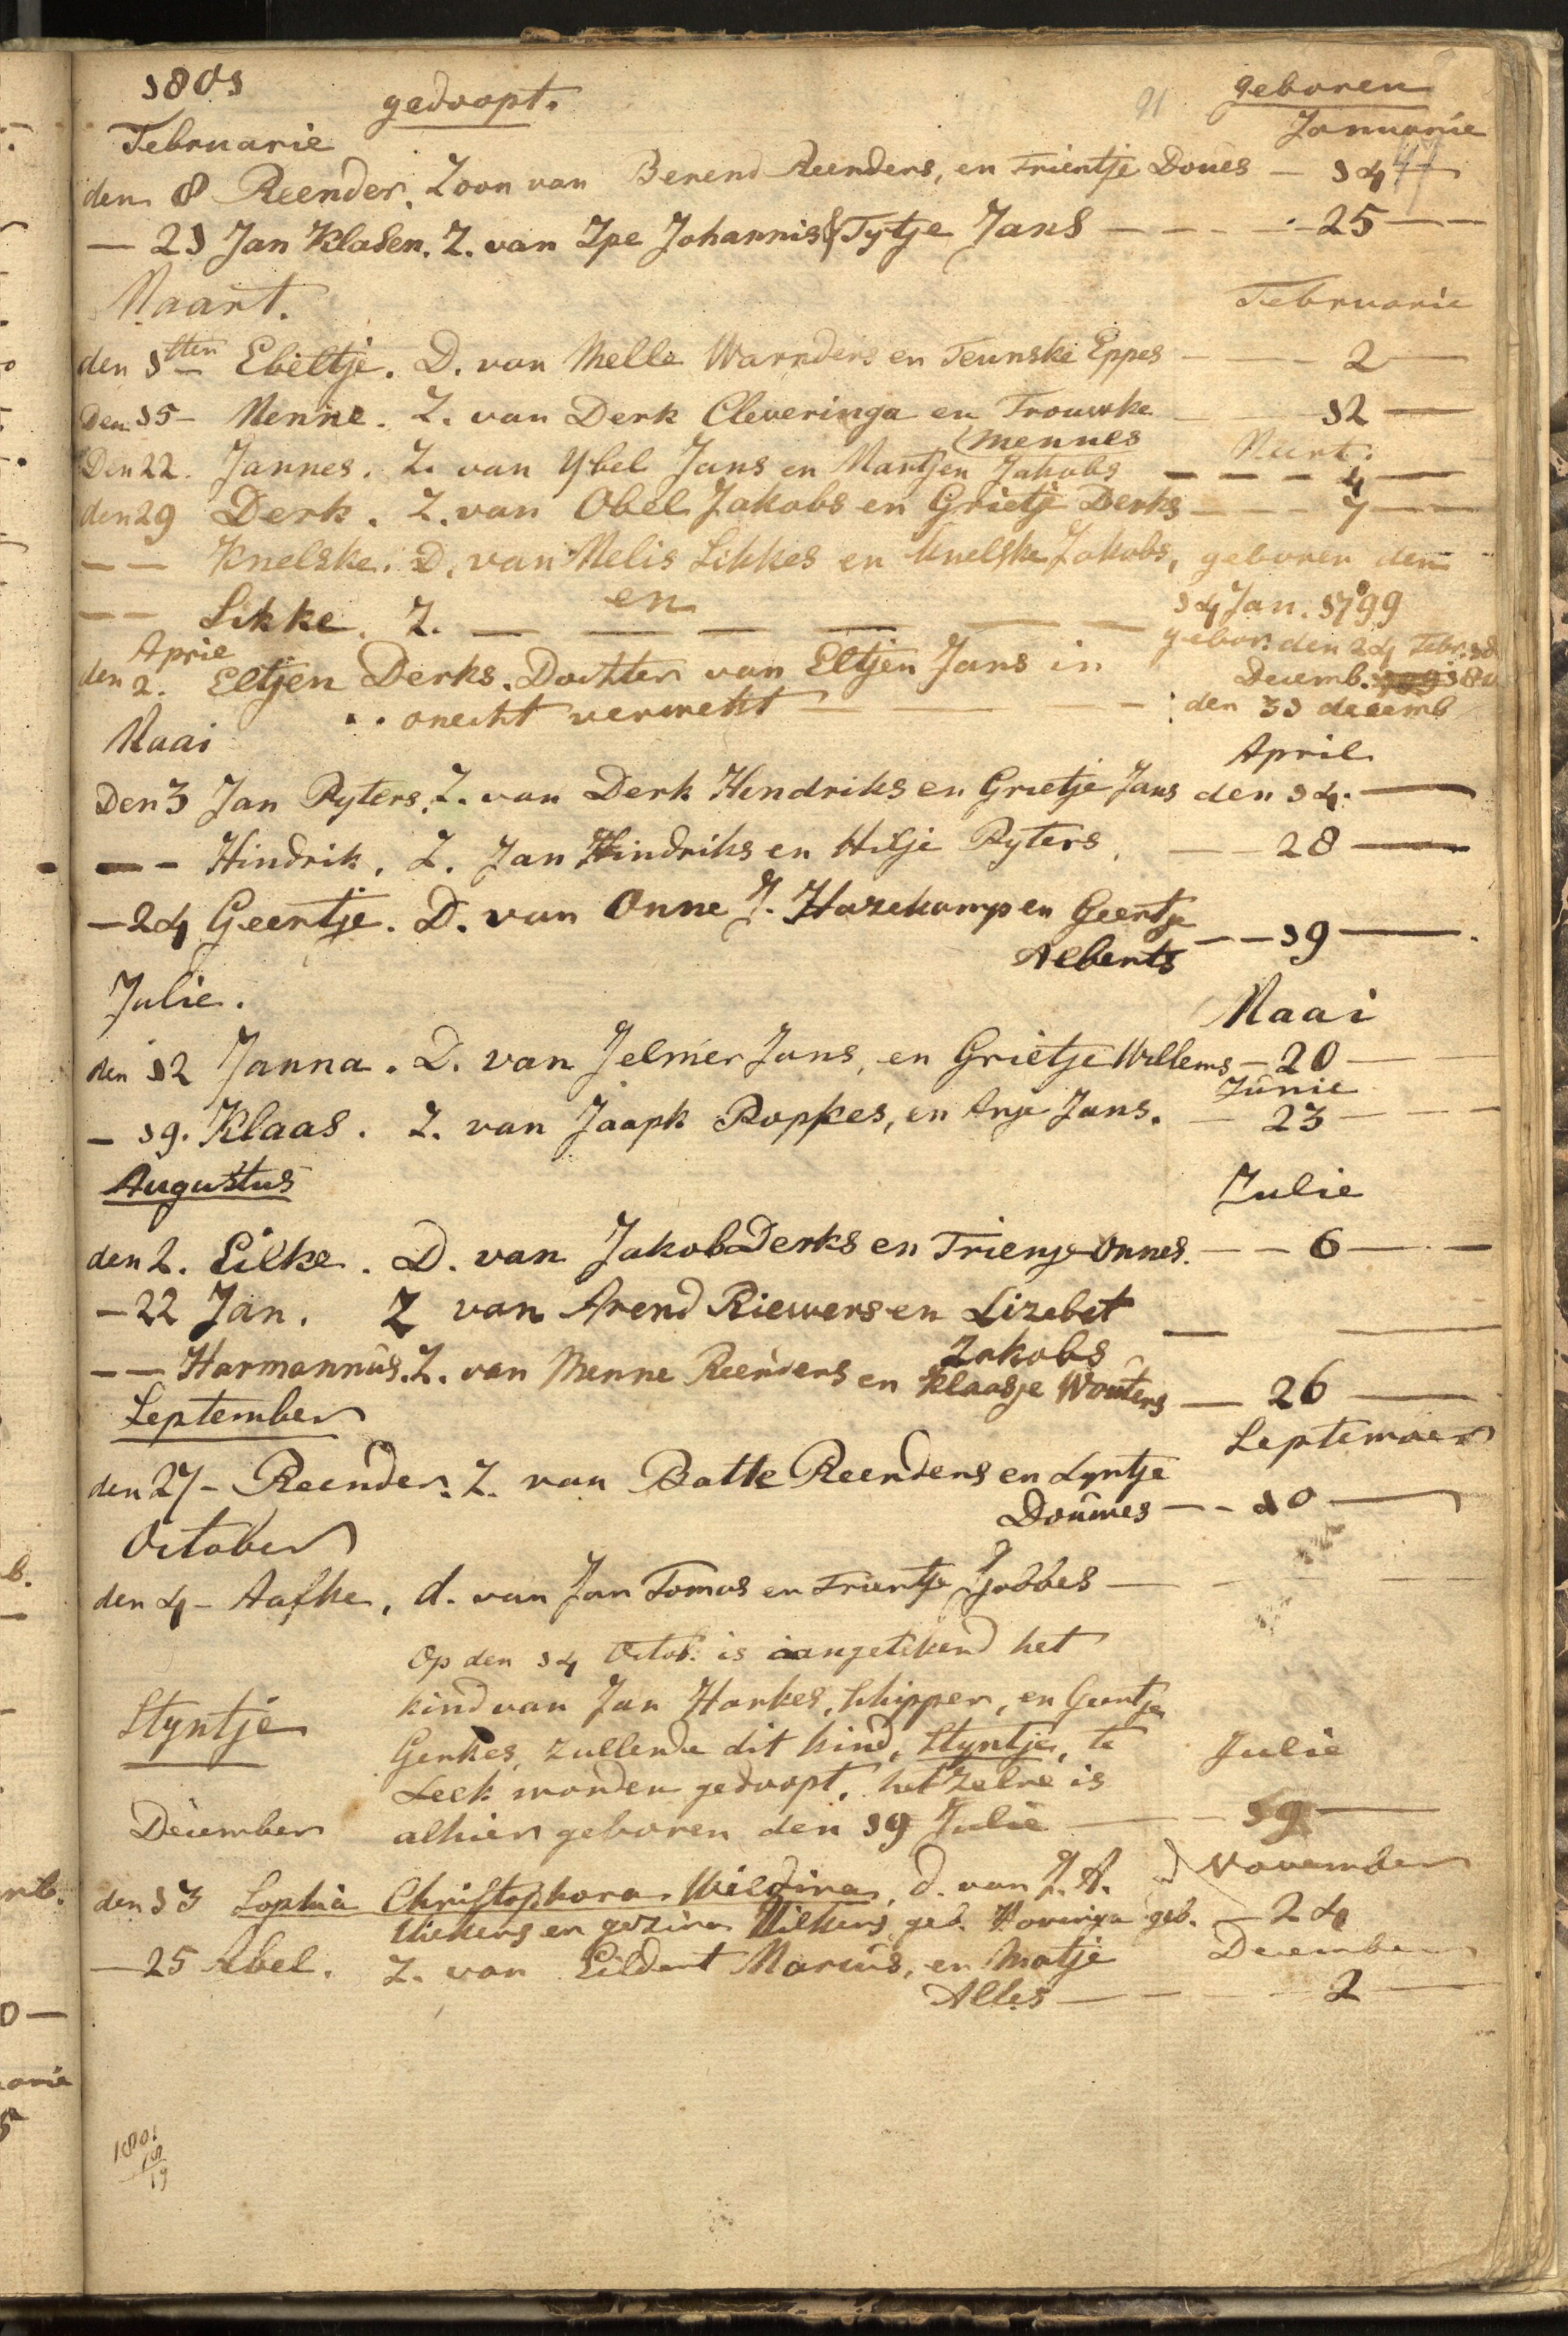 1801 gedoopt. 91 geboren
Februarie Januarie
den 8 Reender. Zoon van Berend Reenders, en Trientje Doues — 14 —
— 21 Jan Klasen. Z. van Ipe Johannis & Tytje Jans — — 25 — —
Maart. Februarie
den 1sten Ebeltje. D. van Melle Warnders en Teunske Eppes — — 2 —
Den 15 — Menne. Z. van Derk Cleveringa en Trouwke — 12 —
Mennes Maart.
Den 22. Jannes. Z. van Ybel Jans en Martjen Jakobs — — — 4 —
den 29 Derk. Z. van Obel Jakobs en Grietje Derks — — — 7 — —
— — Knelske. D. van Melis Sikkes en Knelske Jakobs, geboren den
en 14 Jan. 1799
— — Sikke. Z. — — — — — — gebor. den 24 Febr.
Aprie
den 2. Eltjen Derks. Dochter van Eltjen Jans in Decemb.
onecht verwekt — — — den 31 decemb
Maai April
Den 3 Jan Ryters. Z. van Derk Hendriks en Grietje Jans den 14. —
— — Hindrik. Z. Jan Hindriks en Hilje Ryters. — 28 —
— 24 Geertje. D. van Onne J. Hazekamp en Geertje
Alberts — — 19 —
Julie. Maai
den 12 Janna. D. van Jelmer Jans, en Grietje Willems — 20 — —
Junie
— 19. Klaas. Z. van Jaapk Popkes, en Anje Jans. — 23 — — —
Augustus Julie
den 2. Eilke. D. van Jakob Derks en Trienje Onnes. — — 6 — —
— 22 Jan. Z van Arend Riewers en Lizebet
Jakobs — —
— — Harmannus. Z. van Menne Reenders en Klaasje Wouters — 26 —
September September
den 27 — Reender. Z. van Batte Reenders en Lyntje
Doumes — — 10 —
October
den 4 — Aafke, d. van Jan Tomas en Trientje Jobbes — — — —
Op den 14 Octob. is aangetekend het
Styntje kind van Jan Harkes, Schipper, en Geertje
Gerkes, zullende dit kind, Styntje, te Julie
Leek worden gedoopt. het zelve is
December alhier geboren den 19 Julie — — 19 —
November
den 13 Sophia Christophora Wildina, d. van J. A.
en gezina Wilkens, geb. Haveringa geb. — 24
— 25 Abel. Z. van Eildert Marcus, en Matje December
Alles — — — 2 —
1801
18
19